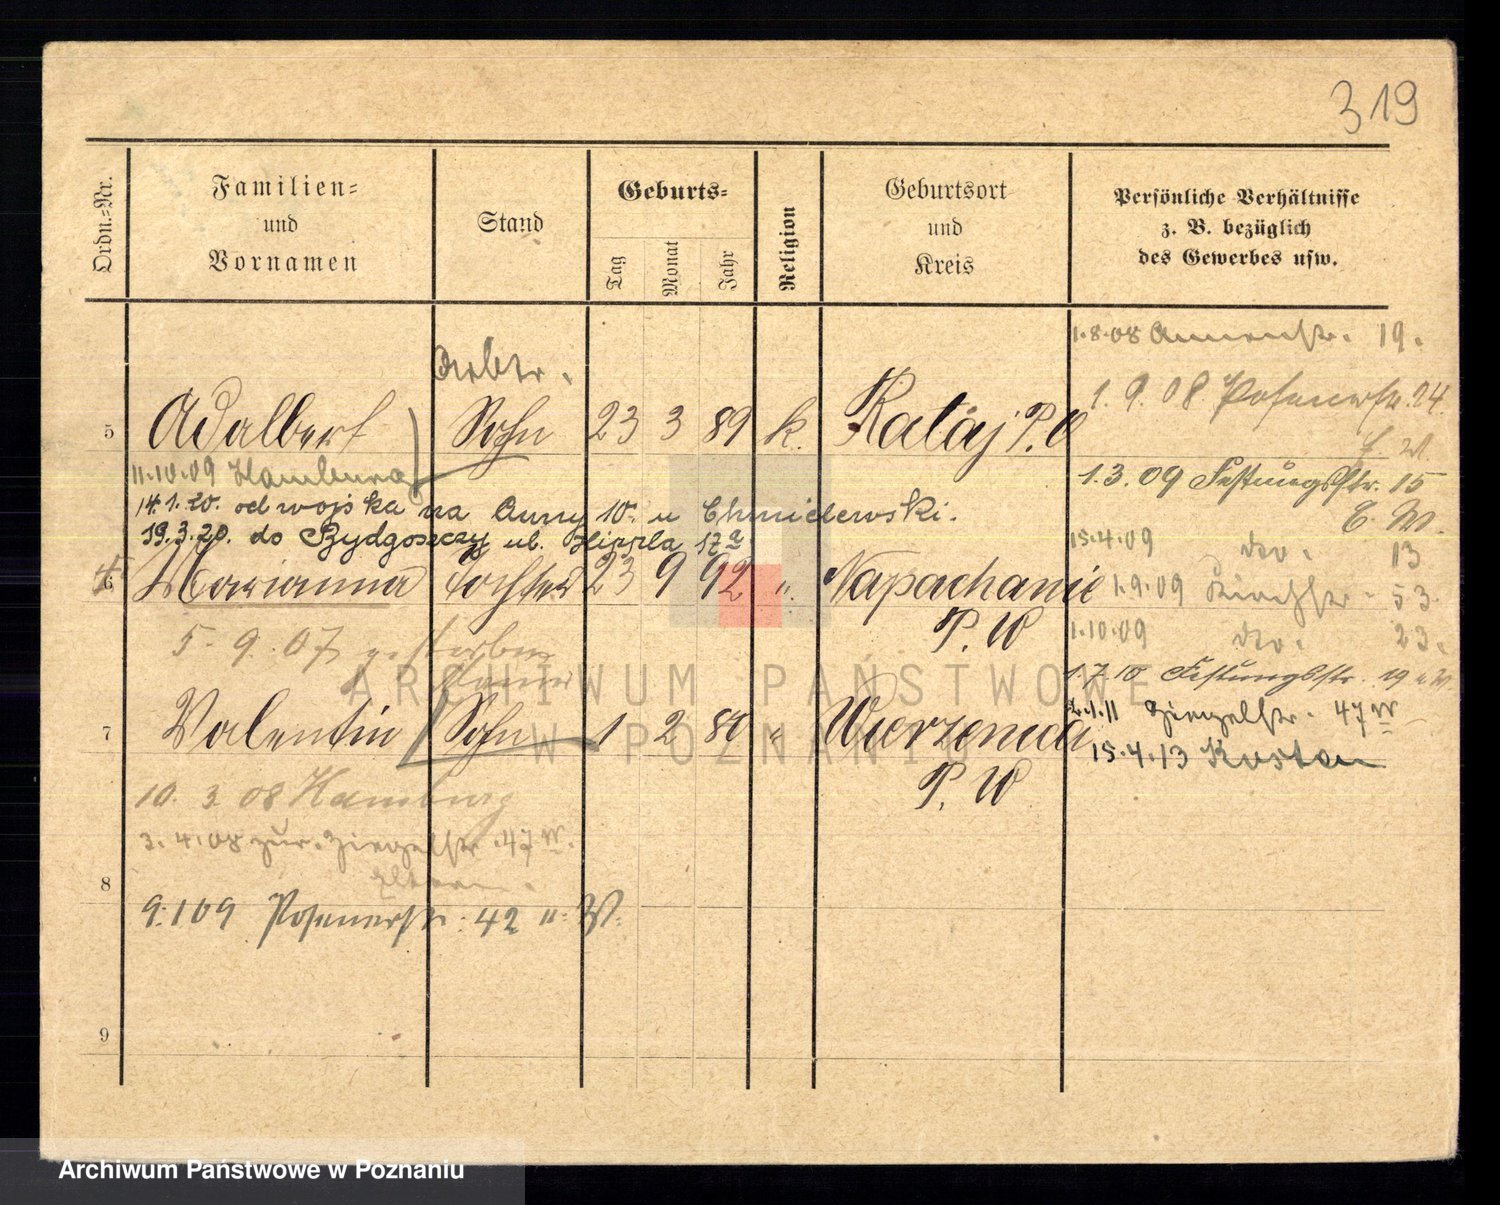 319
Ordn.-Nr.
Familien-
und
Vornamen
Stand
Geburts-
Tag
Monat
Jahr
Religion
Geburtsort
und
Kreis
Persönliche Verhältnisse
z. B. bezüglich
des Gewerbes usw.
1.8.08 Annenstr. 19.
Arbtr.
1.9.08 Posenerstr. 24.
5 Adalbert Sohn 23 3 89 k. Rataj P. O
11.10.09 Hamburg
1.3.09 Festungsstr. 15
14.1.20. od wojska na Anny 10. u Chmielewski.
E. W.
19.3.20. do Bydgoszczy ul. Hippla 17a
15.4.09 dto. 13
6 Marianna Tochter 23 9 92 ". Napachanie
P. W
1.9.09 Kirchstr. 53.
5.9.07 gestorben
1.10.09 dto. 23.
1.7.10 Festungsstr. 19 u W.
7 Valentin Sohn 1 2 80 " Wierzenica
P. W
2.1.11 Ziegelstr. 47 W
15.4.13 Kosten
10.3.08 Hamburg
3.4.08 zur. Ziegelstr. 47 W.
Eltern.
8
9.1 09 Posenerstr. 42 u. W.
9
ARCHIWUM PAŃSTWOWE
W POZNANIU
Archiwum Państwowe w Poznaniu